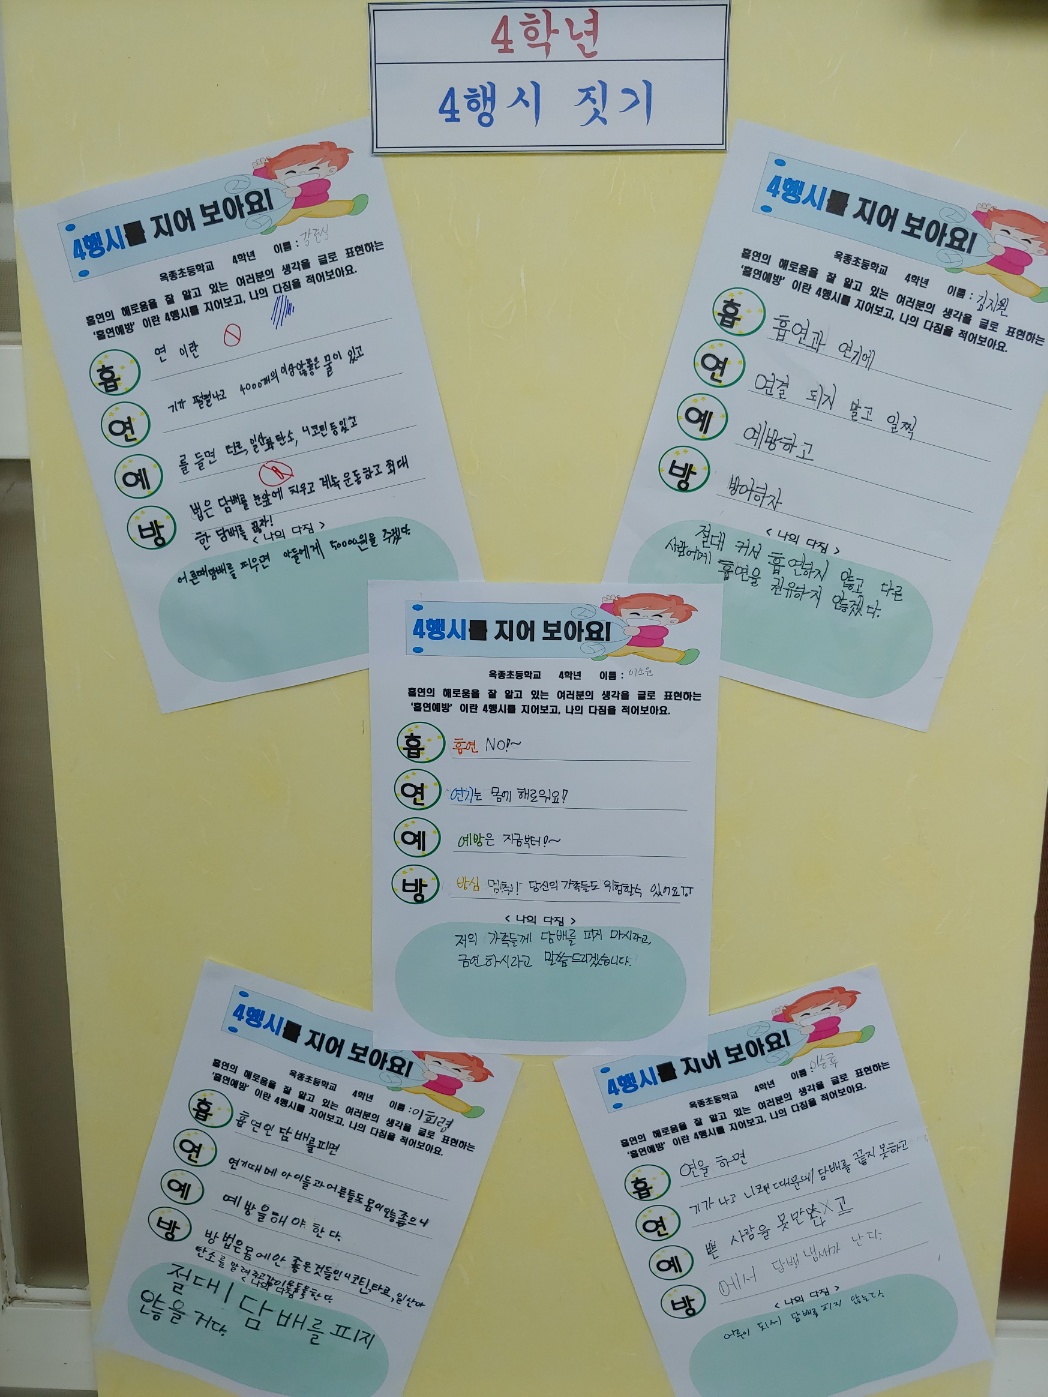 4학년
4행시 짓기
4행시를 지어 보아요!
옥종초등학교 4학년 이름 :
흡연의 해로움을 잘 알고 있는 여러분의 생각을 글로 표현하는
'흡연예방' 이란 4행시를 지어보고, 나의 다짐을 적어보아요.
흡 연 이란
연 기가 펄펄나고 4000개의 이상않좋은 물이 있고
예 를 들면 타르, 일산화탄소, 니코틴등있고
방 법은 담배를 눈앞에 치우고 계속 운동하고 최대
한 담배를
< 나의 다짐 >
어른때담배를 피우면 아들에게 50000원을 주겠다
4행시를 지어 보아요!
옥종초등학교 4학년 이름 : 김지원
흡연의 해로움을 잘 알고 있는 여러분의 생각을 글로 표현하는
'흡연예방' 이란 4행시를 지어보고, 나의 다짐을 적어보아요.
흡 흡연과 연기에
연 연결 되지 말고 일찍
예 예방하고
방 방어하자
< 나의 다짐 >
절대 커서 흡연하지 않고 다른
사람에게 흡연을 권유하지 않겠다.
4행시를 지어 보아요!
옥종초등학교 4학년 이름 :
흡연의 해로움을 잘 알고 있는 여러분의 생각을 글로 표현하는
'흡연예방' 이란 4행시를 지어보고, 나의 다짐을 적어보아요.
흡 흡연 NO!~
연 연기는 몸에 해로워요?
예 예방은 지금부터!~
방 방심 멈춰!! 당신의 가족들도 위험할수 있어요
< 나의 다짐 >
저의 가족들께 담배를 피지 마시라고,
금연하시라고 말씀드리겠습니다.
4행시를 지어 보아요!
옥종초등학교 4학년 이름 : 이희령
흡연의 해로움을 잘 알고 있는 여러분의 생각을 글로 표현하는
'흡연예방' 이란 4행시를 지어보고, 나의 다짐을 적어보아요.
흡 흡연인 담배를피면
연 연기때메 아이들과어른들도 몸이안좋으니
예 예방을해야 한다.
방 방법은몸에안 좋은것들인니코틴,타르,일산화
탄소를
< 나의 다짐 >
절대! 담배를 피지
않을 거다.
4행시를 지어 보아요!
옥종초등학교 4학년 이름 : 이승후
흡연의 해로움을 잘 알고 있는 여러분의 생각을 글로 표현하는
'흡연예방' 이란 4행시를 지어보고, 나의 다짐을 적어보아요.
흡 연을 하면
연 기가 나고 니코틴 때문에 담배를 끊지 못하고
예 쁜 사람을 못만난고
방 에서 담배 냄새가 난다.
< 나의 다짐 >
어른이 되서 담배를 피지 않는다.